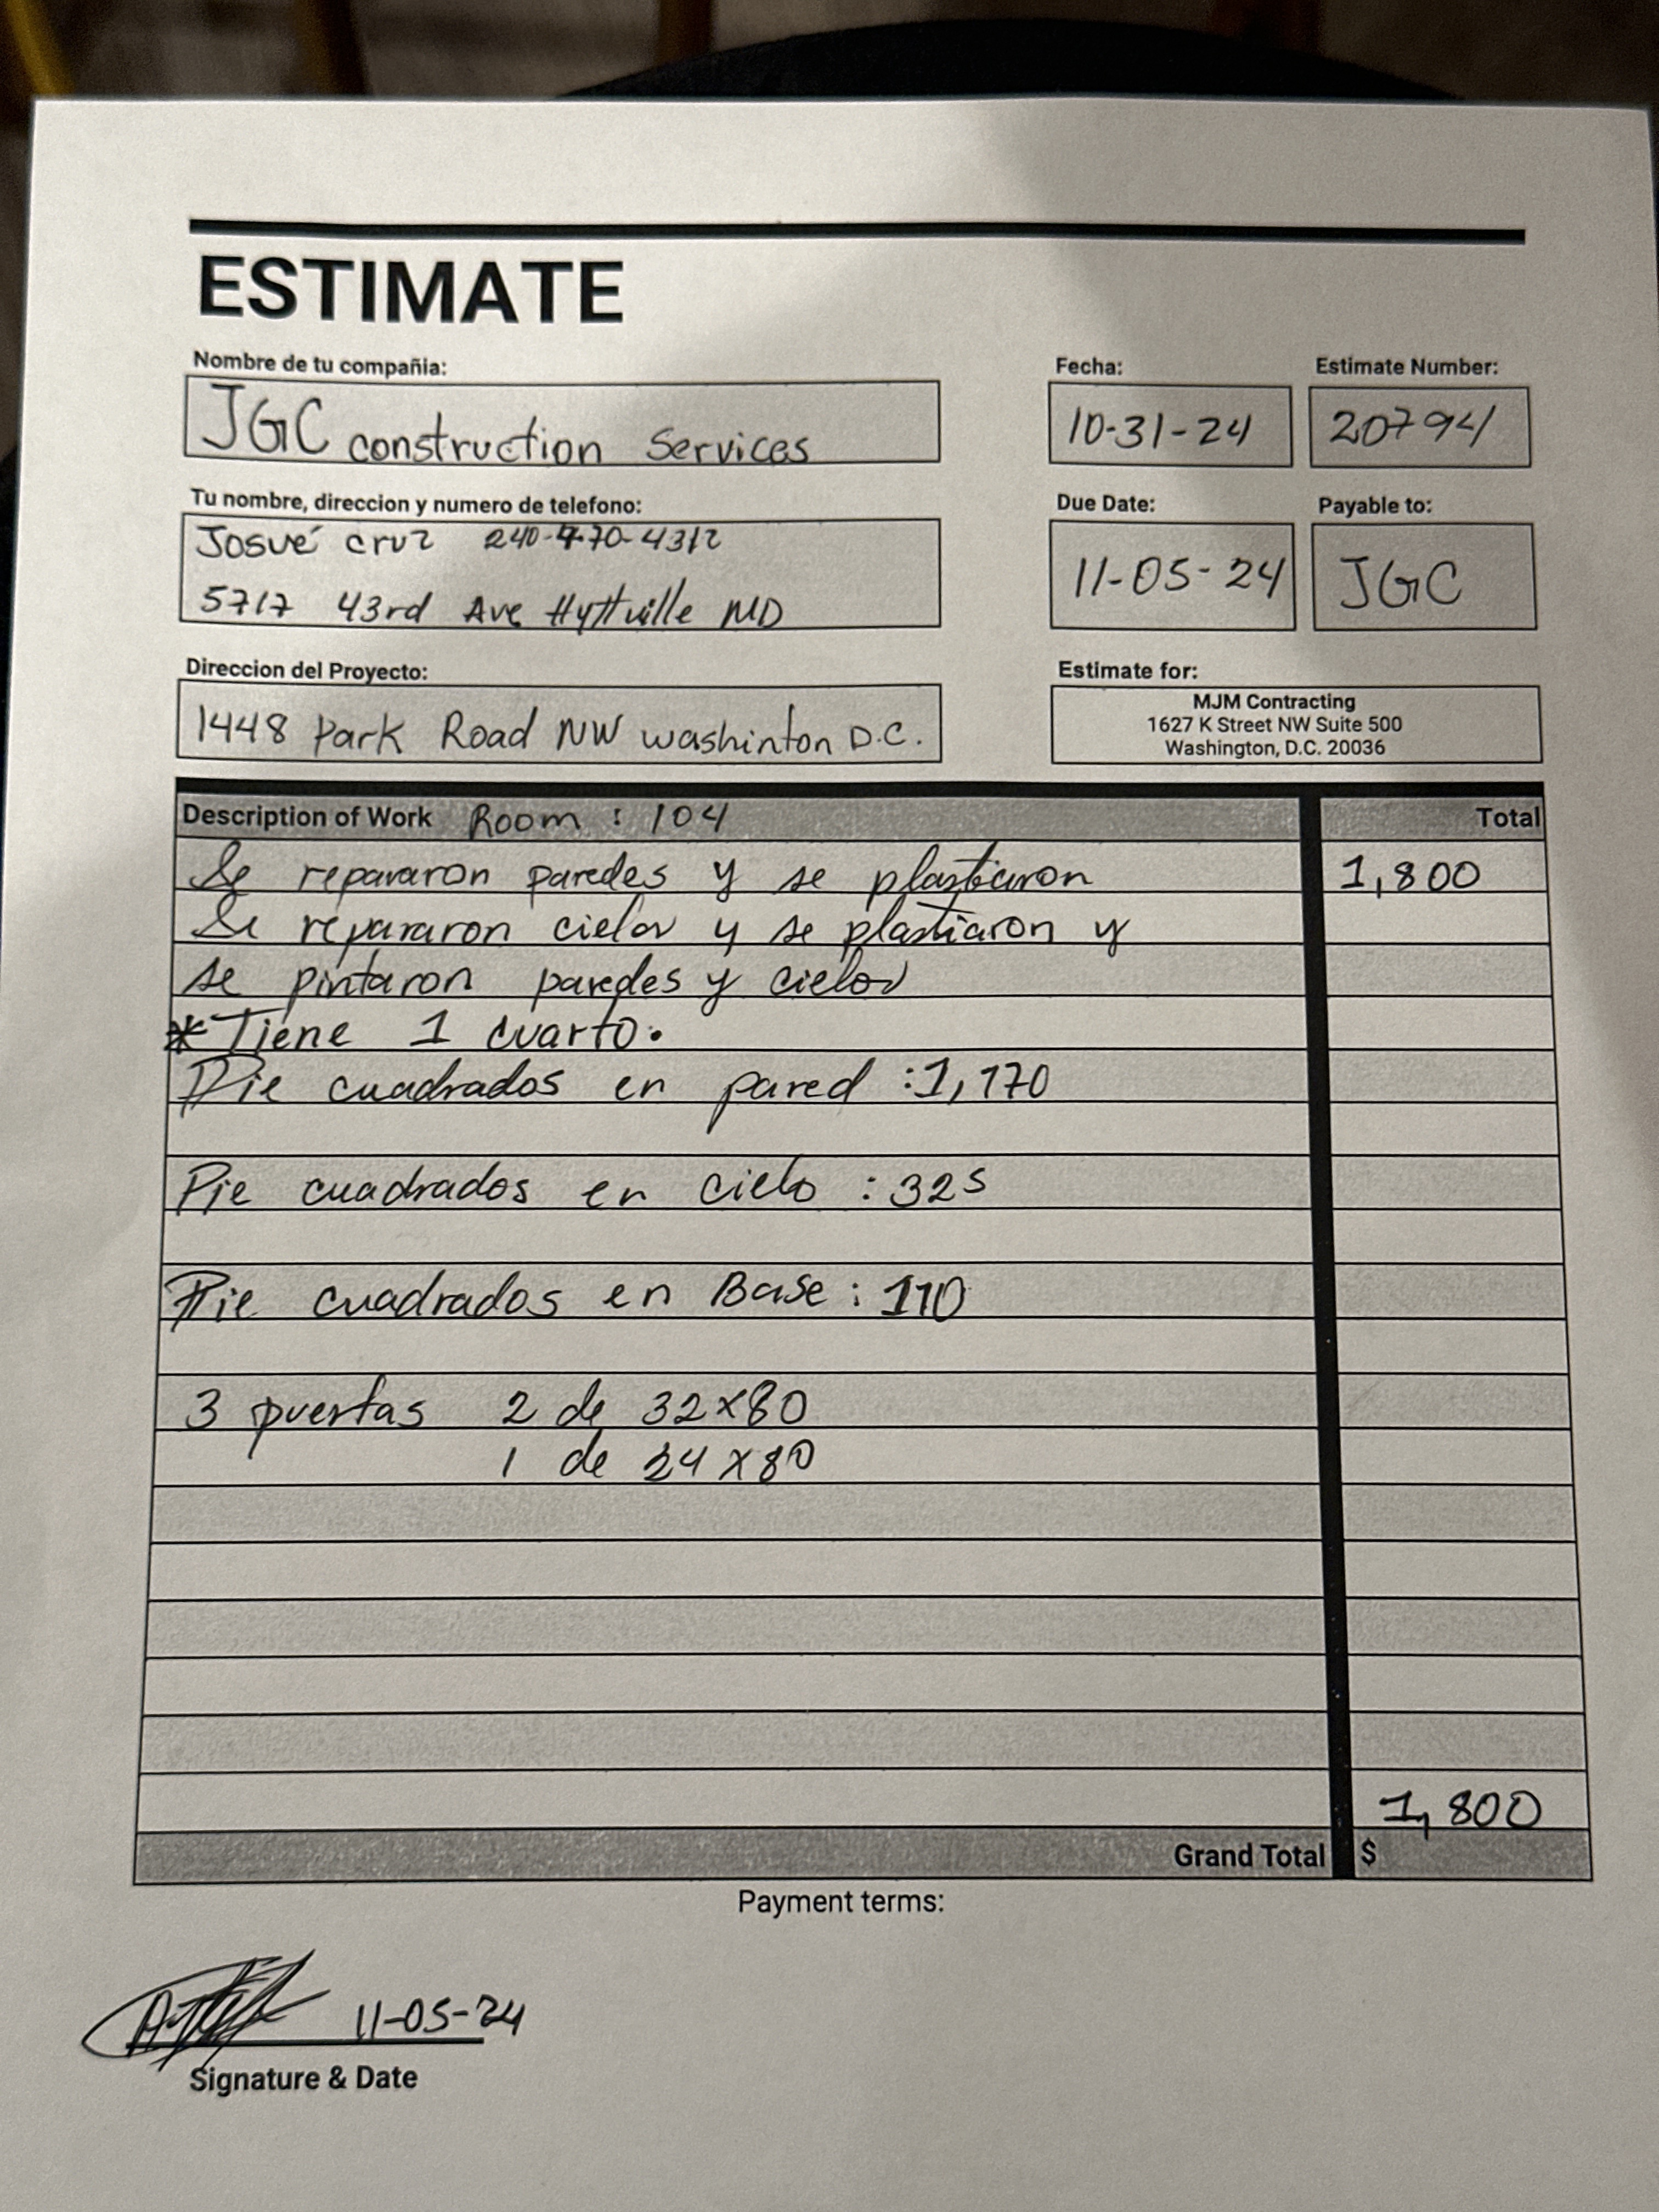 ESTIMATE
Nombre de tu compañia:
JGC construction Services
Fecha:
10-31-24
Estimate Number:
20794
Tu nombre, direccion y numero de telefono:
Josué cruz 240-470-4312
5717 43rd Ave Hyttville MD
Due Date:
11-05-24
Payable to:
JGC
Direccion del Proyecto:
1448 Park Road NW washinton D.C.
Estimate for:
MJM Contracting
1627 K Street NW Suite 500
Washington, D.C. 20036
Description of Work Room : 104 Total
Se repararon paredes y se plastiaron 1,800
Se repararon cielos y se plastiaron y
se pintaron paredes y cielos
* Tiene 1 cuarto.
Pie cuadrados en pared : 1,170
Pie cuadrados en cielo : 325
Pie cuadrados en Base : 110
3 puertas 2 de 32x80
1 de 24x80
1,800
Grand Total $
Payment terms:
11-05-24
Signature & Date